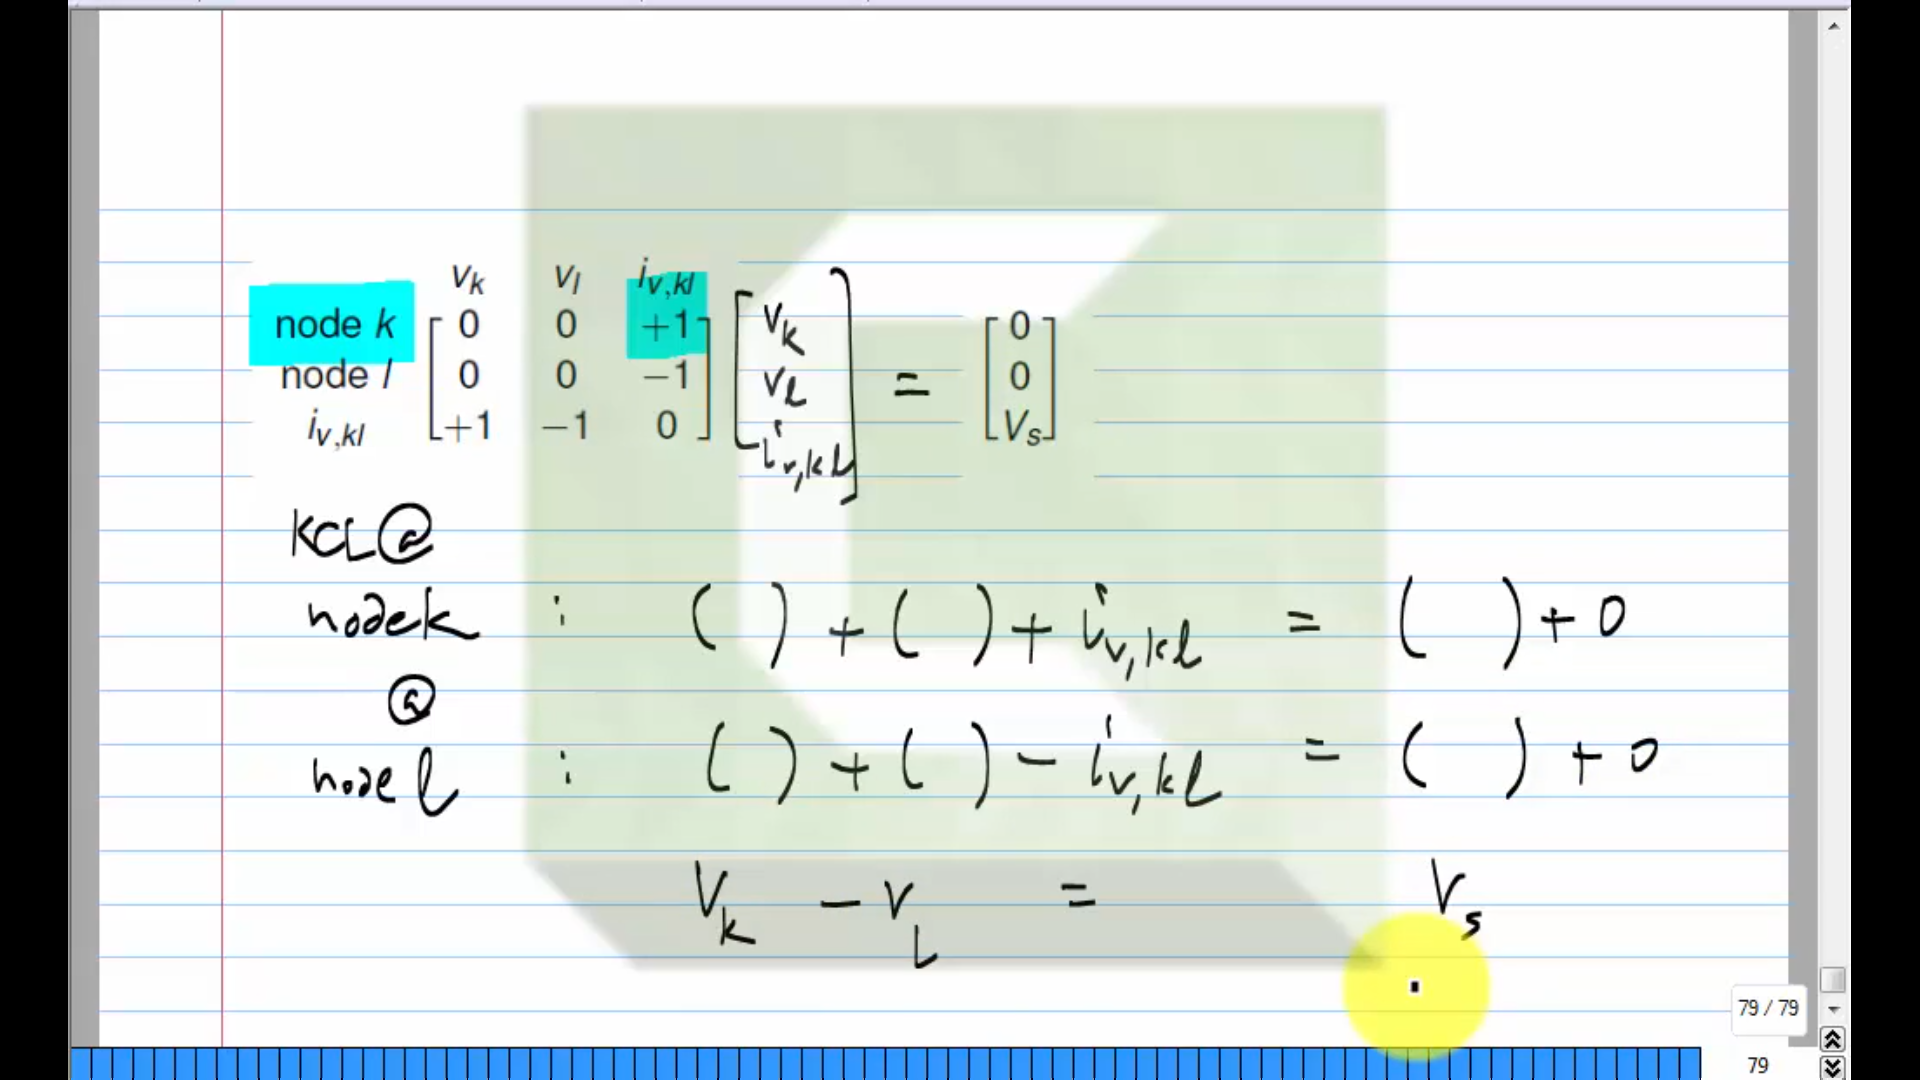 v_k v_l i_v,kl
node k [ 0 0 +1 ] [ v_k ] [ 0 ]
node l [ 0 0 −1 ] [ v_l ] = [ 0 ]
i_v,kl [ +1 −1 0 ] [ i_v,kl ] [ V_s ]
KCL@
node k : ( ) + ( ) + i_v,kl = ( ) + 0
@
node l : ( ) + ( ) − i_v,kl = ( ) + 0
V_k − v_l = V_s
79 / 79
79